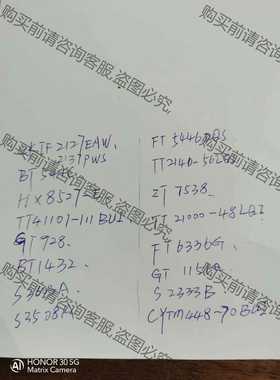 购买前请咨询客服,盗图必究.
KTF2127EAW.
2137PWS
BT
HX8527-
TT41101-111BUI
GT928.
BT1432.
S3508
FT5446DQS
TT2140-56L
ZT7538
TT21000-48LQI
FT6336G.
GT115
S2333B
CYTM448-70B
HONOR 30 5G
Matrix Camera